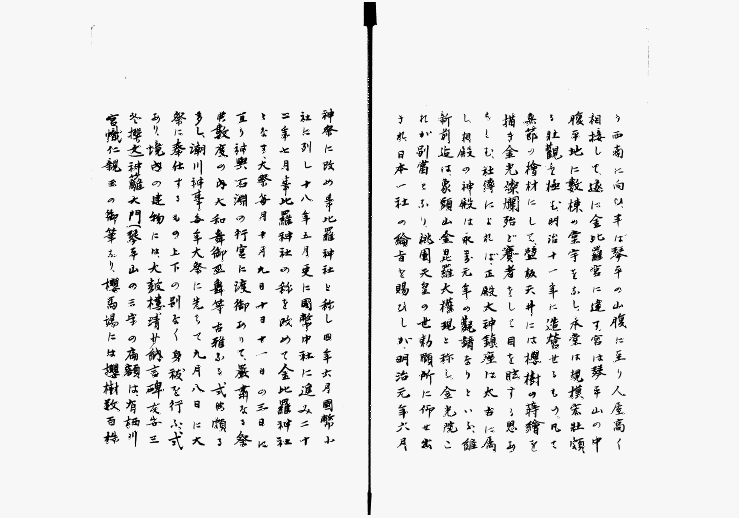 ら西南に向ひ半ば琴平の山腹に亙り人屋高く
相接して遂に金比羅宮に達す、宮は琴平山の中
腹平地に數棟の棠宇をなし、本堂は規模宏壯頗
る壯觀を極む明治十一年に造營せるもの凡て
無節の檜材にして壁板天井には櫻樹の蒔繪を
描き金光燦爛殆ど賽者をして目を眩する思あ
らしむ、社傳によれば正殿大神鎮座は太古に属
し相殿の神殿は永萬元年の觀請なりといふ、維
新前迄は象頭山金毘羅大權現と称し、金光院こ
れが別當となり桃園天皇の世勅願所に仰せ出
され日本一社の綸旨を賜ひしが、明治元年六月
神祭に改め事比羅神社と称し四年六月國幣小
社に列し十八年五月更に國幣中社に進み二十
二年七月事比羅神社の称を改めて金比羅神社
となす、大祭每月十月九日十日十一日の三日に
亙り神輿石淵の行宮に渡御ありて、嚴肅なる祭
典數度の内大和舞御巫舞等古雅なる式時頗る
多し、潮川神事每年大祭に先ちて九月八日に大
祭に奉仕するもの上下の別なく身祓を行ふ式
あり、境内の建物には大鼓樓清少納言碑文寺三
冬櫻文神籬大門（琴平山の三字の扁額は有栖川
宮幟仁親王の御筆なり、櫻馬場には櫻樹數百株